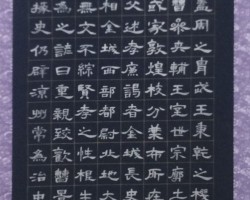 蓋周之胄武王秉乾之機
曹參夾輔王室世宗廓土
或家敦煌枝分葉布所
述孝廉謁者金城長史
相金城西部都尉北地太
無文不綜賢孝之性根生
為之諺曰重親致歡曹景
掾史仍辟涼州常為治中